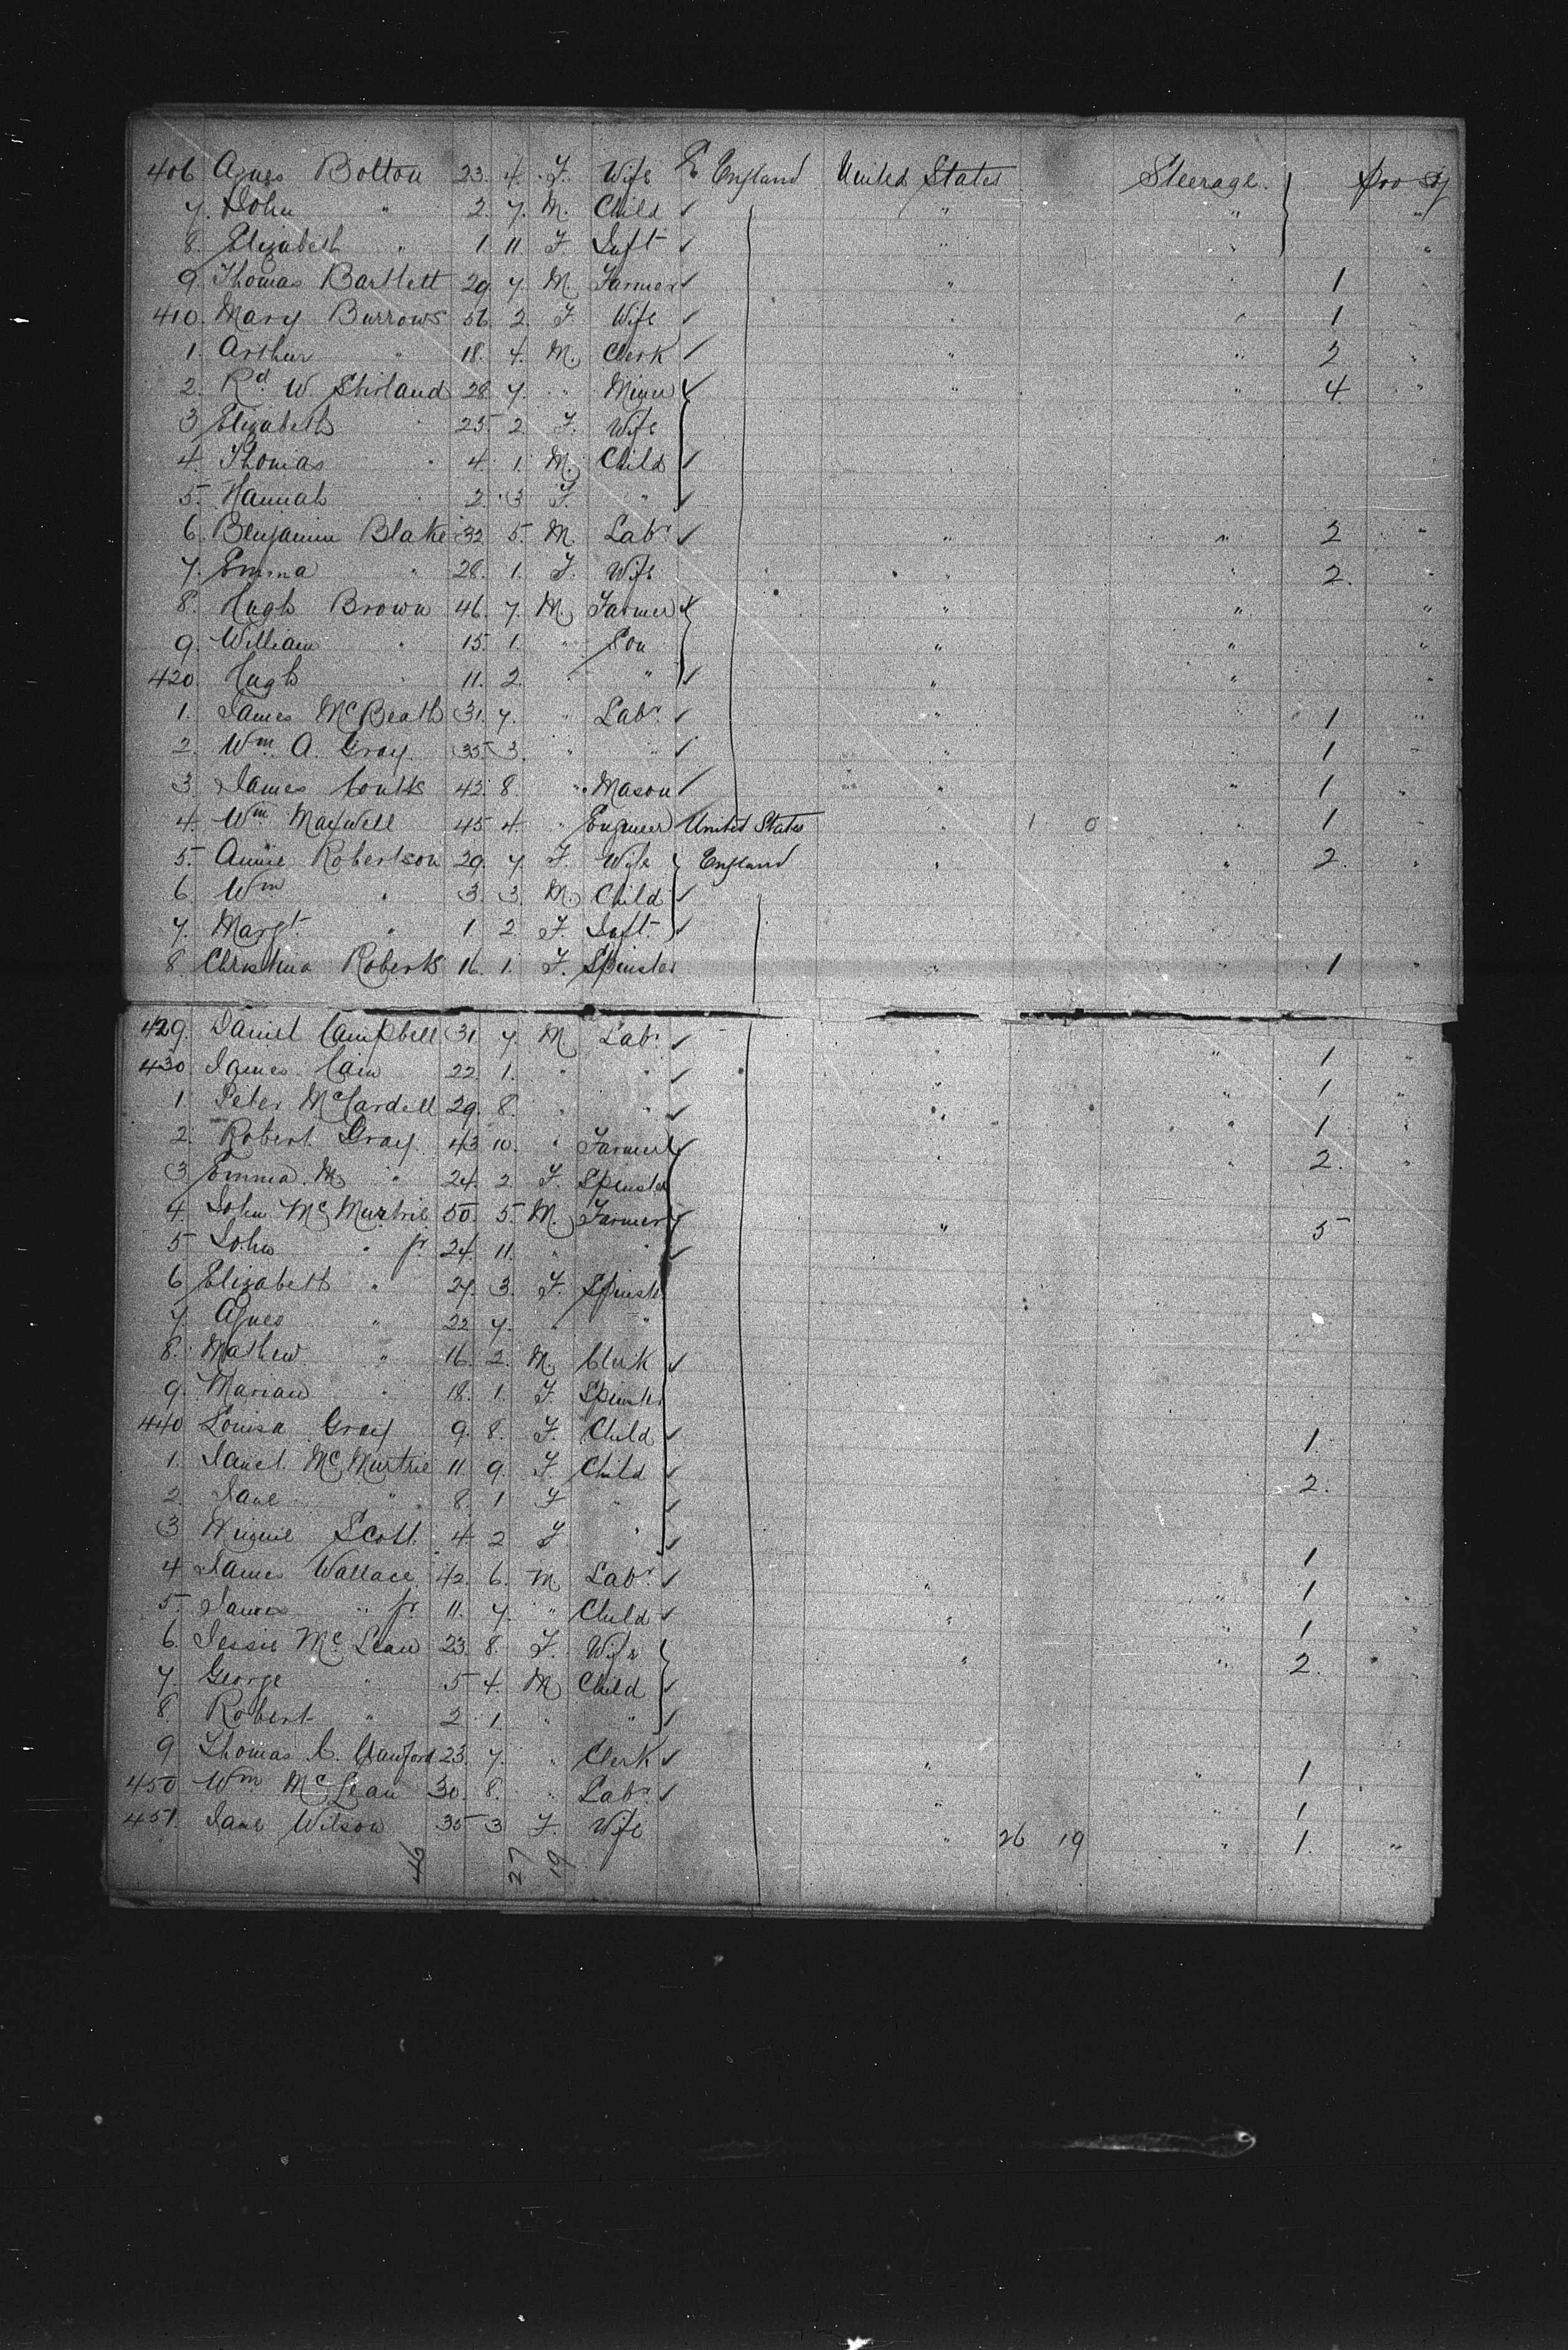 406 Agnes Bolton 23. 4. F. Wife England United States Steerage. pro sy
7. John " 2. 7. M. Child " " "
8. Elizabeth " 1. 11. F. Inft " " "
9. Thomas Bartlett 29 7. M. Farmer " 1 "
410. Mary Burrows 56. 2. F. Wife " " 1 "
1. Arthur " 18. 4. M. Clerk " " 2 "
2. Rd W. Shirland 28. 7. " Miner " " 4. "
3 Elizabeth " 25. 2. F. Wife
4. Thomas " 4. 1. M. Child
5. Hannah " 2. 3 F. "
6. Benjamin Blake 32. 5. M. Labr " " 2 "
7. Emma " 28. 1. F. Wife " " 2. "
8. Hugh Brown 46. 7. M. Farmer " " "
9. William " 15. 1. " Son " " "
420. Hugh " 11. 2. " " " " "
1. James McBeath 31. 7. " Labr " " 1 "
2. Wm A. Gray 35 3. " " " " 1 "
3. James Coutts 42. 8. " Mason " " 1 "
4. Wm Maxwell 45 4. " Engineer United States " 1 0 " 1 "
5. Annie Robertson 29. 7. F. Wife England " " 2. "
6. Wm " 3. 3. M. Child
7. Margt " 1. 2 F. Inft.
8. Christina Roberts 16. 1. F. Spinster " " 1 "
429. Daniel Campbell 31 7. M. Labr " " 1 "
430. James Cain 22. 1. " " " " 1 "
1. Peter McCardell 29. 8. " " " " 1 "
2. Robert Gray 43 10. " Farmer " " 2. "
3 Emma. M " 24. 2. F. Spinster
4. John McMurtrie 50. 5. M. Farmer " 5
5 John " jr. 24. 11. " "
6 Elizabeth " 27. 3. F. Spinst
7. Agnes " 22 7. " "
8. Mathew " 16. 2. M. Clerk
9. Marian " 18. 1. F. Spinst
440 Louisa Gray 9. 8. F. Child 1.
1. Janet. McMurtrie 11. 9. F. Child 2.
2. Jane " 8. 1 F "
3 Scott 4. 2 F " 1
4 James Wallace 42. 6. M Labr. " " 1 "
5. James " jr 11. 7. " Child " " 1 "
6. Jessie McLean 23. 8. F. Wife " " 2. "
7. George " 5 4. M Child
8. Robert " 2 1. " "
9 Thomas C. Crawford 23. 7. " Clerk " " 1
450 Wm McLean 30. 8. " Labr. " " 1
451. Jane Wilson 35 3 F. Wife " 26 19 " 1. "
46 27 19